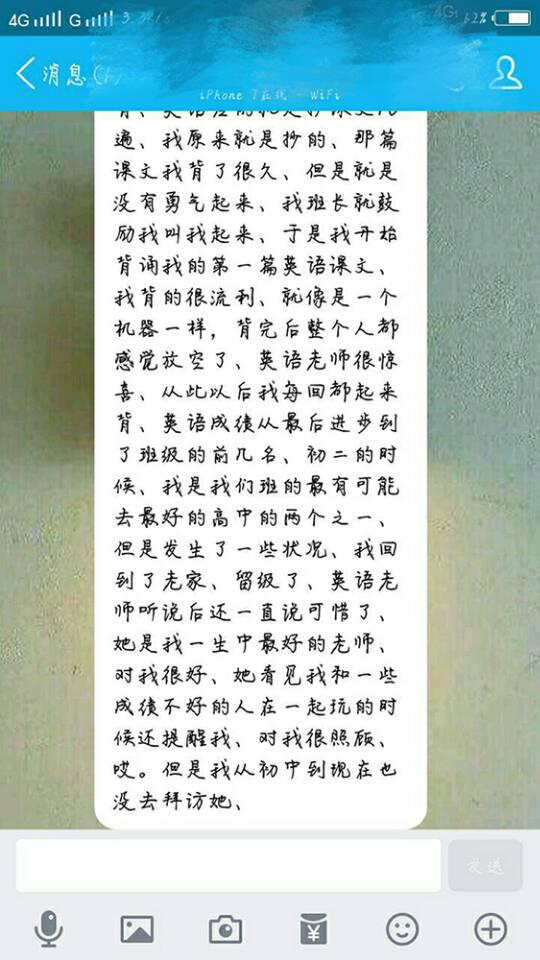 4G G 3.3K/s 4G 62%
消息
iPhone 7在线 - WiFi
背、英语老师就是抄课文几
遍、我原来就是抄的、那篇
课文我背了很久、但是就是
没有勇气起来、我班长就鼓
励我叫我起来、于是我开始
背诵我的第一篇英语课文、
我背的很流利、就像是一个
机器一样，背完后整个人都
感觉放空了、英语老师很惊
喜、从此以后我每回都起来
背、英语成绩从最后进步到
了班级的前几名、初二的时
候、我是我们班的最有可能
去最好的高中的两个之一、
但是发生了一些状况、我回
到了老家、留级了、英语老
师听说后还一直说可惜了、
她是我一生中最好的老师、
对我很好、她看见我和一些
成绩不好的人在一起玩的时
候还提醒我、对我很照顾、
哎。但是我从初中到现在也
没去拜访她、
发送